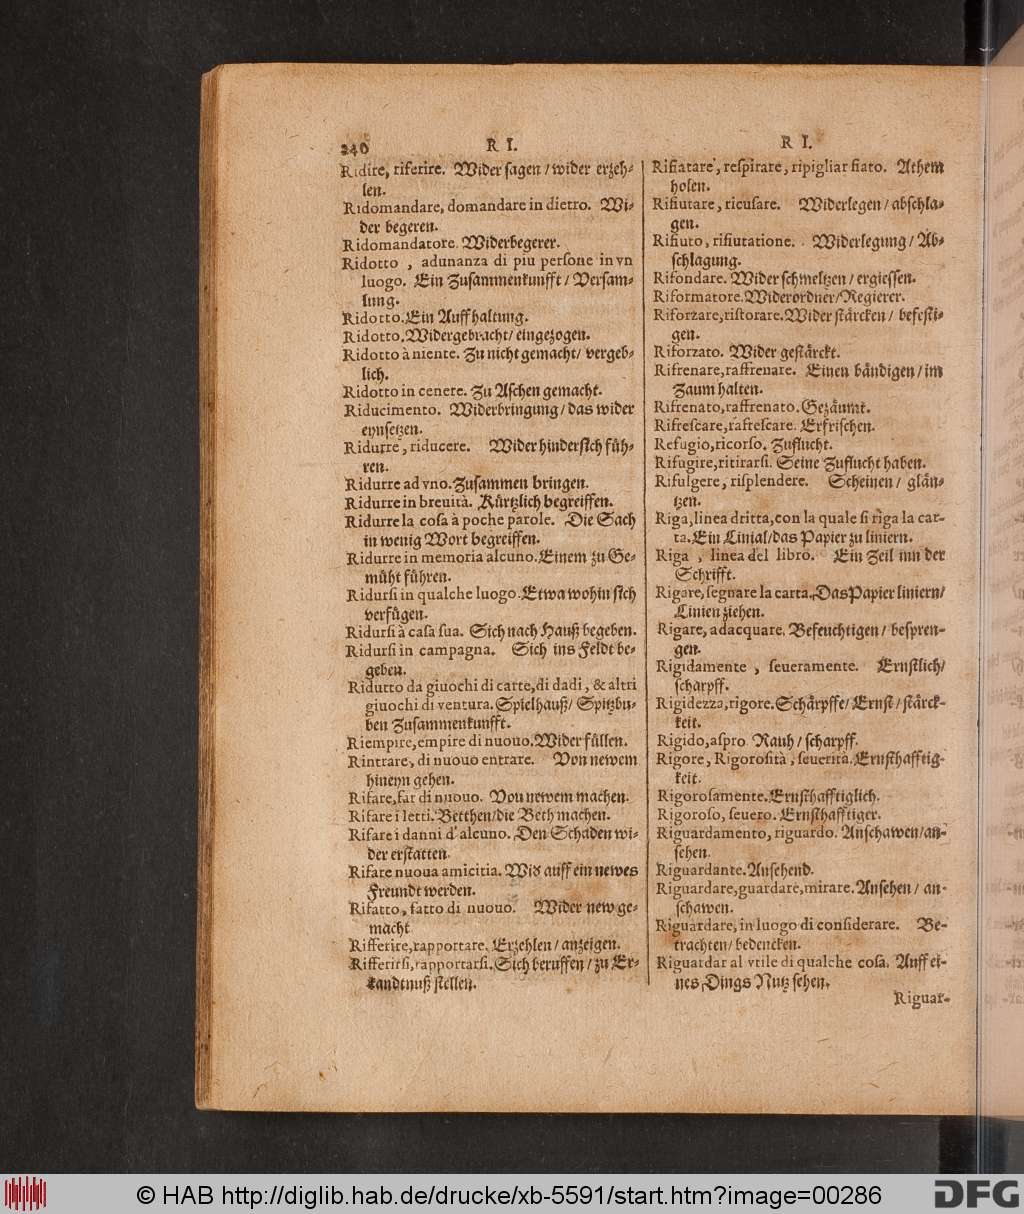 240 R I. R I.
Ridire, riferire. Wider sagen / wider erzeh-
len.
Ridomandare, domandare in dietro. Wi-
der begeren.
Ridomandatore. Widerbegerer.
Ridotto , adunanza di piu persone in vn
luogo. Ein Zusammenkunfft / Versam-
lung.
Ridotto. Ein Auffhaltung.
Ridotto. Widergebracht / eingezogen.
Ridotto à niente. Zu nicht gemacht / vergeb-
lich.
Ridotto in cenere. Zu Aschen gemacht.
Riducimento. Widerbringung / das wider
eynsetzen.
Ridurre, riducere. Wider hindersich füh-
ren.
Ridurre ad vno. Zusammen bringen.
Ridurre in breuità. Kürtzlich begreiffen.
Ridurre la cosa à poche parole. Die Sach
in wenig Wort begreiffen.
Ridurre in memoria alcuno. Einem zu Ge-
müht führen.
Ridursi in qualche luogo. Etwa wohin sich
verfügen.
Ridursi à casa sua. Sich nach Hauß begeben.
Ridursi in campagna. Sich ins Feldt be-
geben.
Ridutto da giuochi di carte, di dadi, & altri
giuochi di ventura. Spielhauß / Spitzbu-
ben Zusammenkunfft.
Riempire, empire di nuouo. Wider füllen.
Rintrare, di nuouo entrare. Von newem
hineyn gehen.
Rifare, far di nuouo. Von newem machen.
Rifare i letti. Betthen / die Beth machen.
Rifare i danni d'alcuno. Den Schaden wi-
der erstatten.
Rifare nuoua amicitia. Wid auff ein newes
Freundt werden.
Rifatto, fatto di nuouo. Wider new ge-
macht
Rifferire, rapportare. Erzehlen / anzeigen.
Rifferirsi, rapportarsi. Sich beruffen / zu Er-
kandtnuß stellen.
Rifiatare, respirare, ripigliar fiato. Athem
holen.
Rifiutare, ricusare. Widerlegen / abschla-
gen.
Rifiuto, rifiutatione. Widerlegung / Ab-
schlagung.
Rifondare. Wider schmeltzen / ergiessen.
Riformatore. Widerordner / Regierer.
Riforzare, ristorare. Wider stärcken / befesti-
gen.
Riforzato. Wider gestärckt.
Rifrenare, raffrenare. Einen bändigen / im
Zaum halten.
Rifrenato, raffrenato. Gezäumt.
Rifrescare, rafrescare. Erfrischen.
Refugio, ricorso. Zuflucht.
Rifugire, ritirarsi. Seine Zuflucht haben.
Rifulgere, risplendere. Scheinen / glän-
tzen.
Riga, linea dritta, con la quale si riga la car-
ta. Ein Linial / das Papier zu liniern.
Riga , linea del libro. Ein Zeil inn der
Schrifft.
Rigare, segnare la carta. Das Papier liniern /
Linien ziehen.
Rigare, adacquare. Befeuchtigen / bespren-
gen.
Rigidamente , seueramente. Ernstlich /
scharpff.
Rigidezza, rigore. Schärpffe / Ernst / stärck-
keit.
Rigido, aspro Rauh / scharpff.
Rigore, Rigorosità, seuerità. Ernsthafftig-
keit.
Rigorosamente. Ernsthafftiglich.
Rigoroso, seuero. Ernsthafftiger.
Riguardamento, riguardo. Anschawen / an-
sehen.
Riguardante. Ansehend.
Riguardare, guardare, mirare. Ansehen / an-
schawen.
Riguardare, in luogo di considerare. Be-
trachten / bedencken.
Riguardar al vtile di qualche cosa. Auff ei-
nes Dings Nutz sehen.
Riguar-
© HAB http://diglib.hab.de/drucke/xb-5591/start.htm?image=00286
DFG